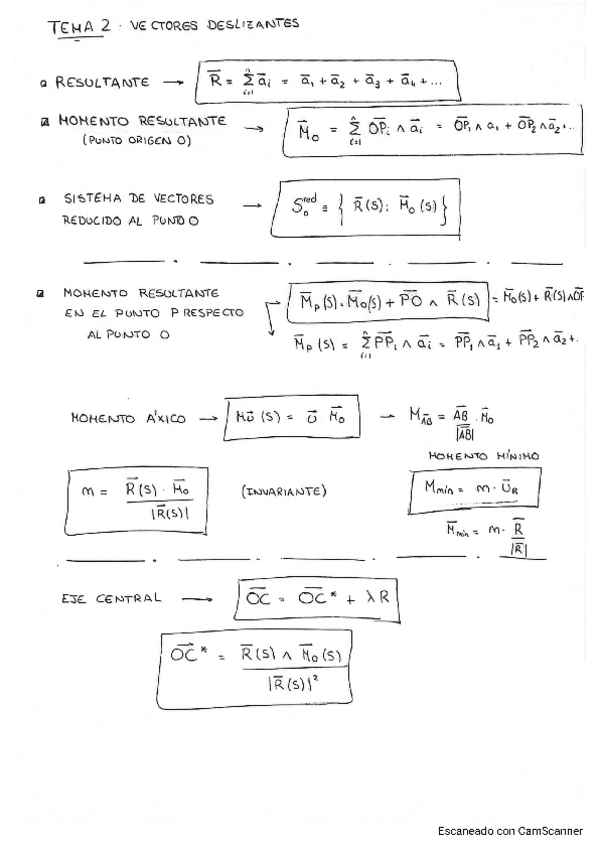 TEMA 2 · VECTORES DESLIZANTES
RESULTANTE → R̅ = Σⁿᵢ₌₁ a̅ᵢ = a̅₁ + a̅₂ + a̅₃ + a̅₄ + ...
MOMENTO RESULTANTE
(PUNTO ORIGEN O) → M̅ₒ = Σⁿᵢ₌₁ O̅P̅ᵢ ∧ a̅ᵢ = O̅P̅₁ ∧ a₁ + O̅P̅₂ ∧ a̅₂...
SISTEMA DE VECTORES
REDUCIDO AL PUNTO O → Sₒʳᵉᵈ ≡ { R̅(S); M̅ₒ(S) }
MOMENTO RESULTANTE
EN EL PUNTO P RESPECTO
AL PUNTO O
M̅ₚ(S) = M̅ₒ(S) + P̅O̅ ∧ R̅(S) = M̅ₒ(S) + R̅(S) ∧ O̅P̅
M̅ₚ(S) = Σⁿᵢ₌₁ P̅P̅ᵢ ∧ a̅ᵢ = P̅P̅₁ ∧ a̅₁ + P̅P̅₂ ∧ a̅₂ + ..
MOMENTO ÁXICO → MU̅(S) = U̅ M̅ₒ – M_A̅B̅ = A̅B̅/|A̅B̅| · M̅ₒ
MOMENTO MÍNIMO
m = R̅(S) · M̅ₒ / |R̅(S)| (INVARIANTE) Mmin = m · U̅_R
M̅min = m · R̅/|R̅|
EJE CENTRAL → O̅C̅ = O̅C̅* + λR
O̅C̅* = R̅(S) ∧ M̅ₒ(S) / |R̅(S)|²
Escaneado con CamScanner